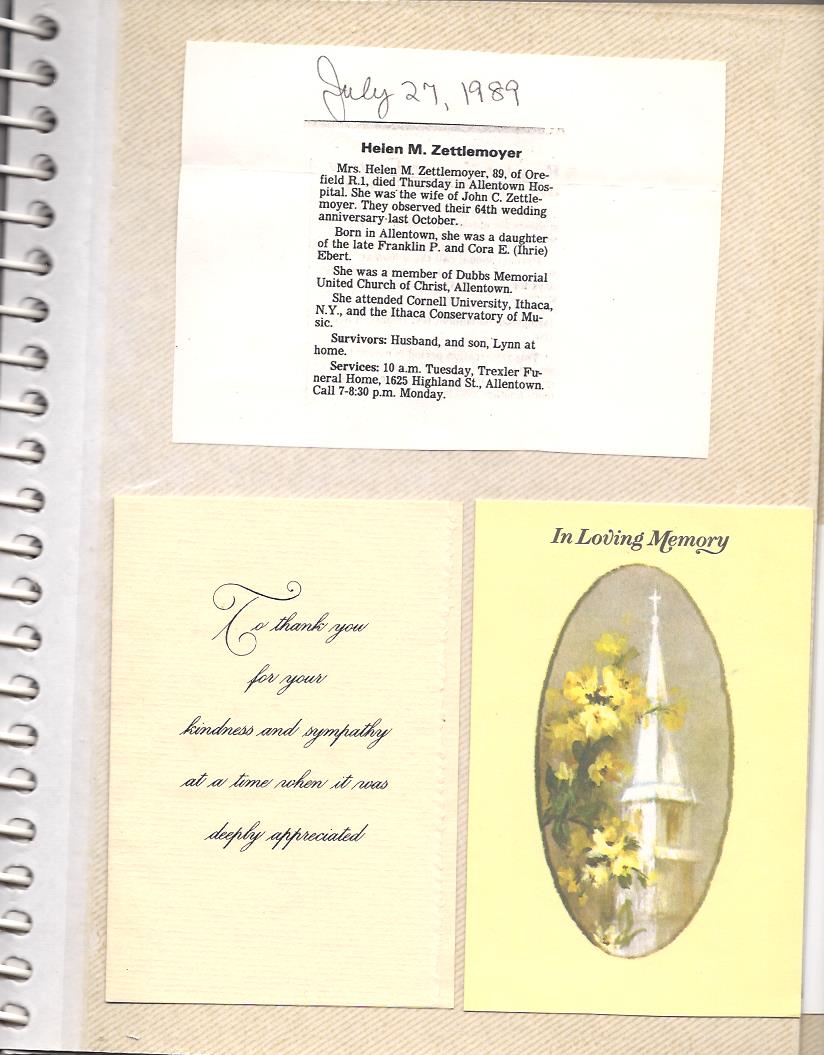 July 27, 1989
Helen M. Zettlemoyer
Mrs. Helen M. Zettlemoyer, 89, of Ore-
field R.1, died Thursday in Allentown Hos-
pital. She was the wife of John C. Zettle-
moyer. They observed their 64th wedding
anniversary last October.
Born in Allentown, she was a daughter
of the late Franklin P. and Cora E. (Ihrie)
Ebert.
She was a member of Dubbs Memorial
United Church of Christ, Allentown.
She attended Cornell University, Ithaca,
N.Y., and the Ithaca Conservatory of Mu-
sic.
Survivors: Husband, and son, Lynn at
home.
Services: 10 a.m. Tuesday, Trexler Fu-
neral Home, 1625 Highland St., Allentown.
Call 7-8:30 p.m. Monday.
To thank you
for your
kindness and sympathy
at a time when it was
deeply appreciated
In Loving Memory